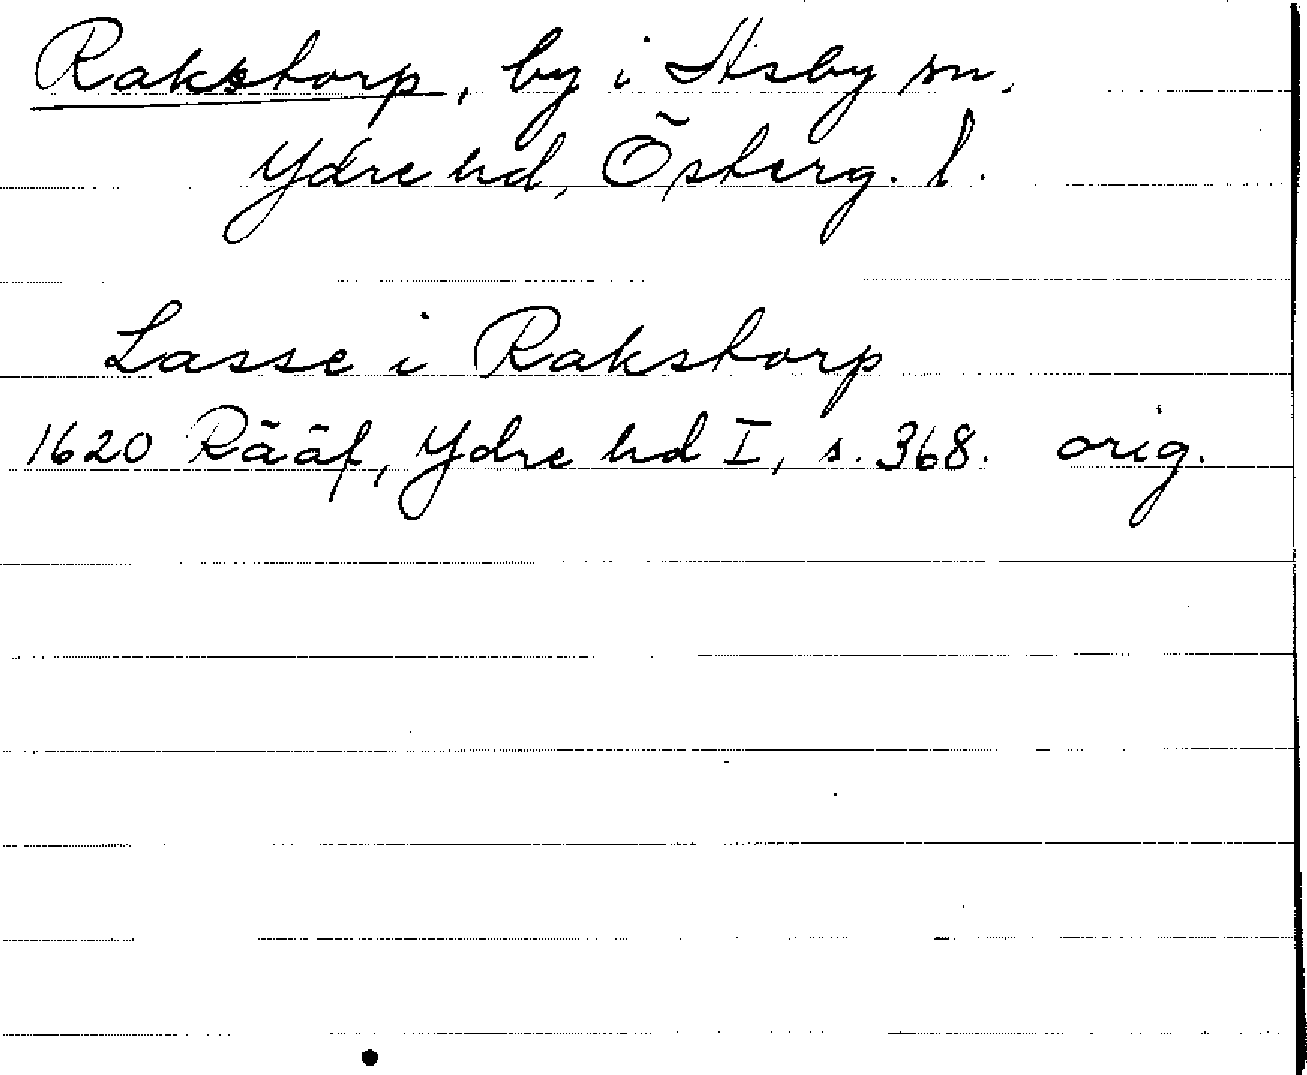 Rakstorp, by i Asby sn,
Ydre hd, Österg. l.
Lasse i Rakstorp
1620 Rääf, Ydre hd I, s. 368. orig.